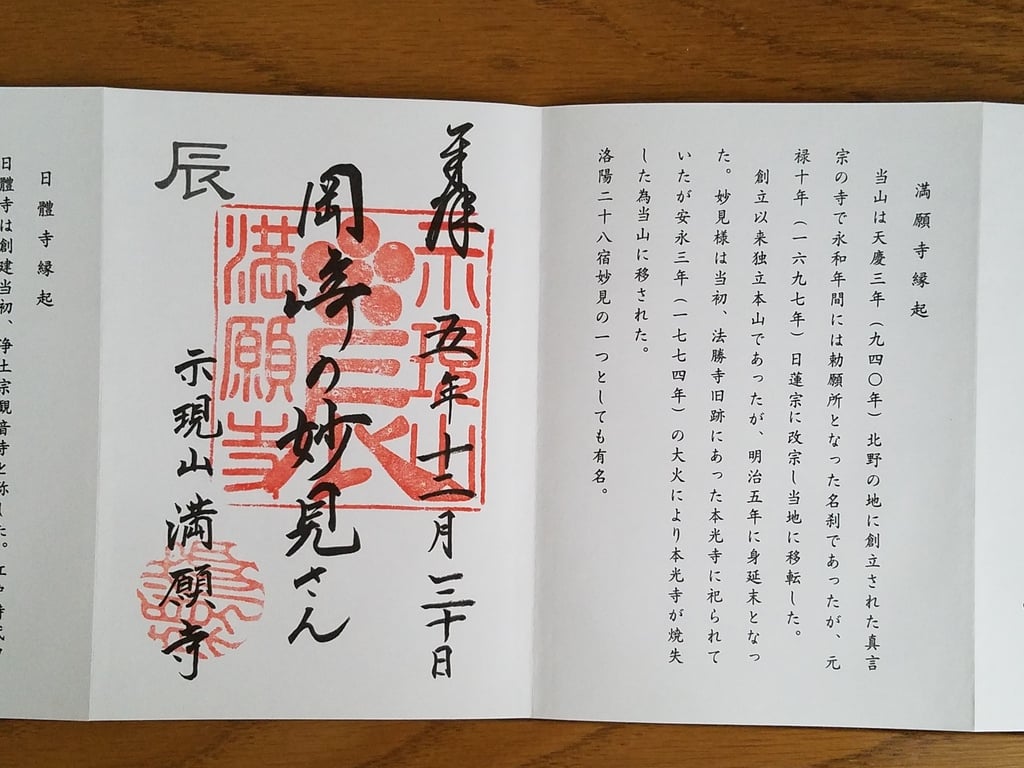 満願寺縁起
当山は天慶三年（九四〇年）北野の地に創立された真言
宗の寺で永和年間には勅願所となった名刹であったが、元
禄十年（一六九七年）日蓮宗に改宗し当地に移転した。
創立以来独立本山であったが、明治五年に身延末となっ
た。妙見様は当初、法勝寺旧跡にあった本光寺に祀られて
いたが安永三年（一七七四年）の大火により本光寺が焼失
した為当山に移された。
洛陽二十八宿妙見の一つとしても有名。
奉拝 五年十二月三十日
示現山
岡崎の妙見さん
満願寺
辰
示現山満願寺
日體寺縁起
日體寺は創建当初、浄土宗観音寺と称した。江戸時代